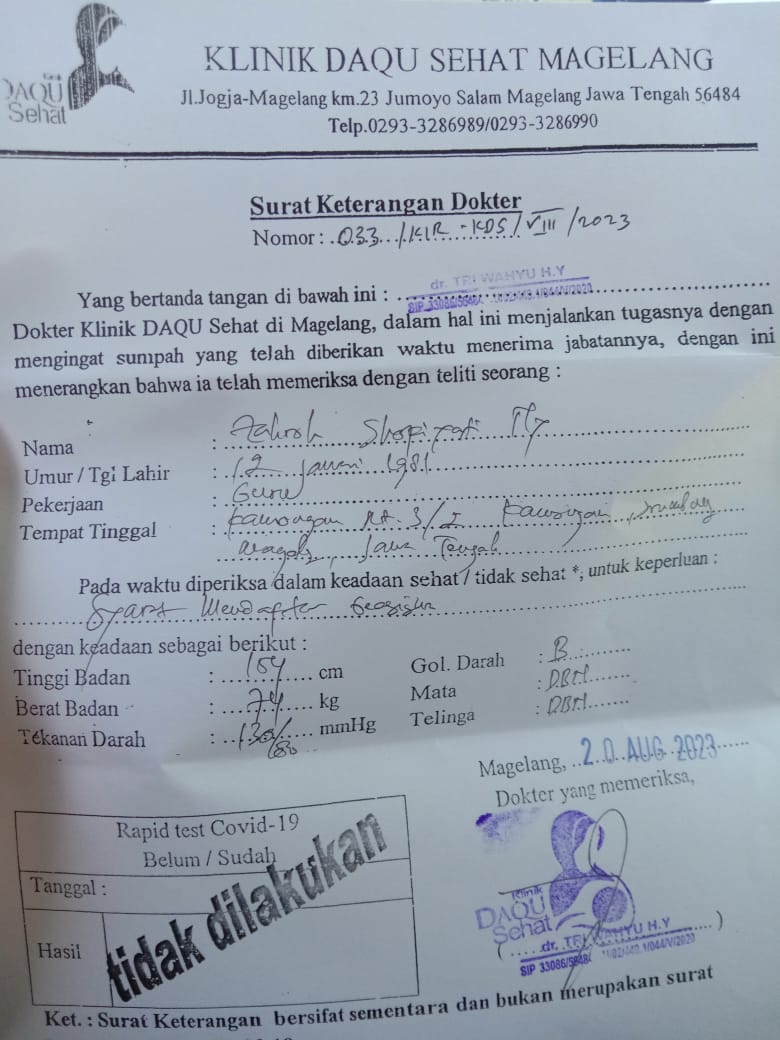 Klinik
DAQU
Sehat
KLINIK DAQU SEHAT MAGELANG
Jl.Jogja-Magelang km.23 Jumoyo Salam Magelang Jawa Tengah 56484
Telp.0293-3286989/0293-3286990
Surat Keterangan Dokter
Nomor : 033/KIR-KDS/VIII/2023
Yang bertanda tangan di bawah ini : dr. TRI WAHYU H.Y
Dokter Klinik DAQU Sehat di Magelang, dalam hal ini menjalankan tugasnya dengan
mengingat sumpah yang telah diberikan waktu menerima jabatannya, dengan ini
menerangkan bahwa ia telah memeriksa dengan teliti seorang :
Nama :
Umur / Tgl Lahir : 12 1981
Pekerjaan : Guru
Tempat Tinggal : Rt. 3/2
Jawa Tengah
Pada waktu diperiksa dalam keadaan sehat / tidak sehat *, untuk keperluan :
Syarat Mendaftar
dengan keadaan sebagai berikut :
Tinggi Badan : 154 cm Gol. Darah : B
Berat Badan : 74 kg Mata : DBH
Tekanan Darah : 130/80 mmHg Telinga : DBH
Magelang, 20 AUG 2023
Dokter yang memeriksa,
Rapid test Covid-19
Belum / Sudah
Tanggal :
Hasil
tidak dilakukan
Klinik
DAQU
Sehat
( dr. TRI WAHYU H.Y )
Ket. : Surat Keterangan bersifat sementara dan bukan merupakan surat